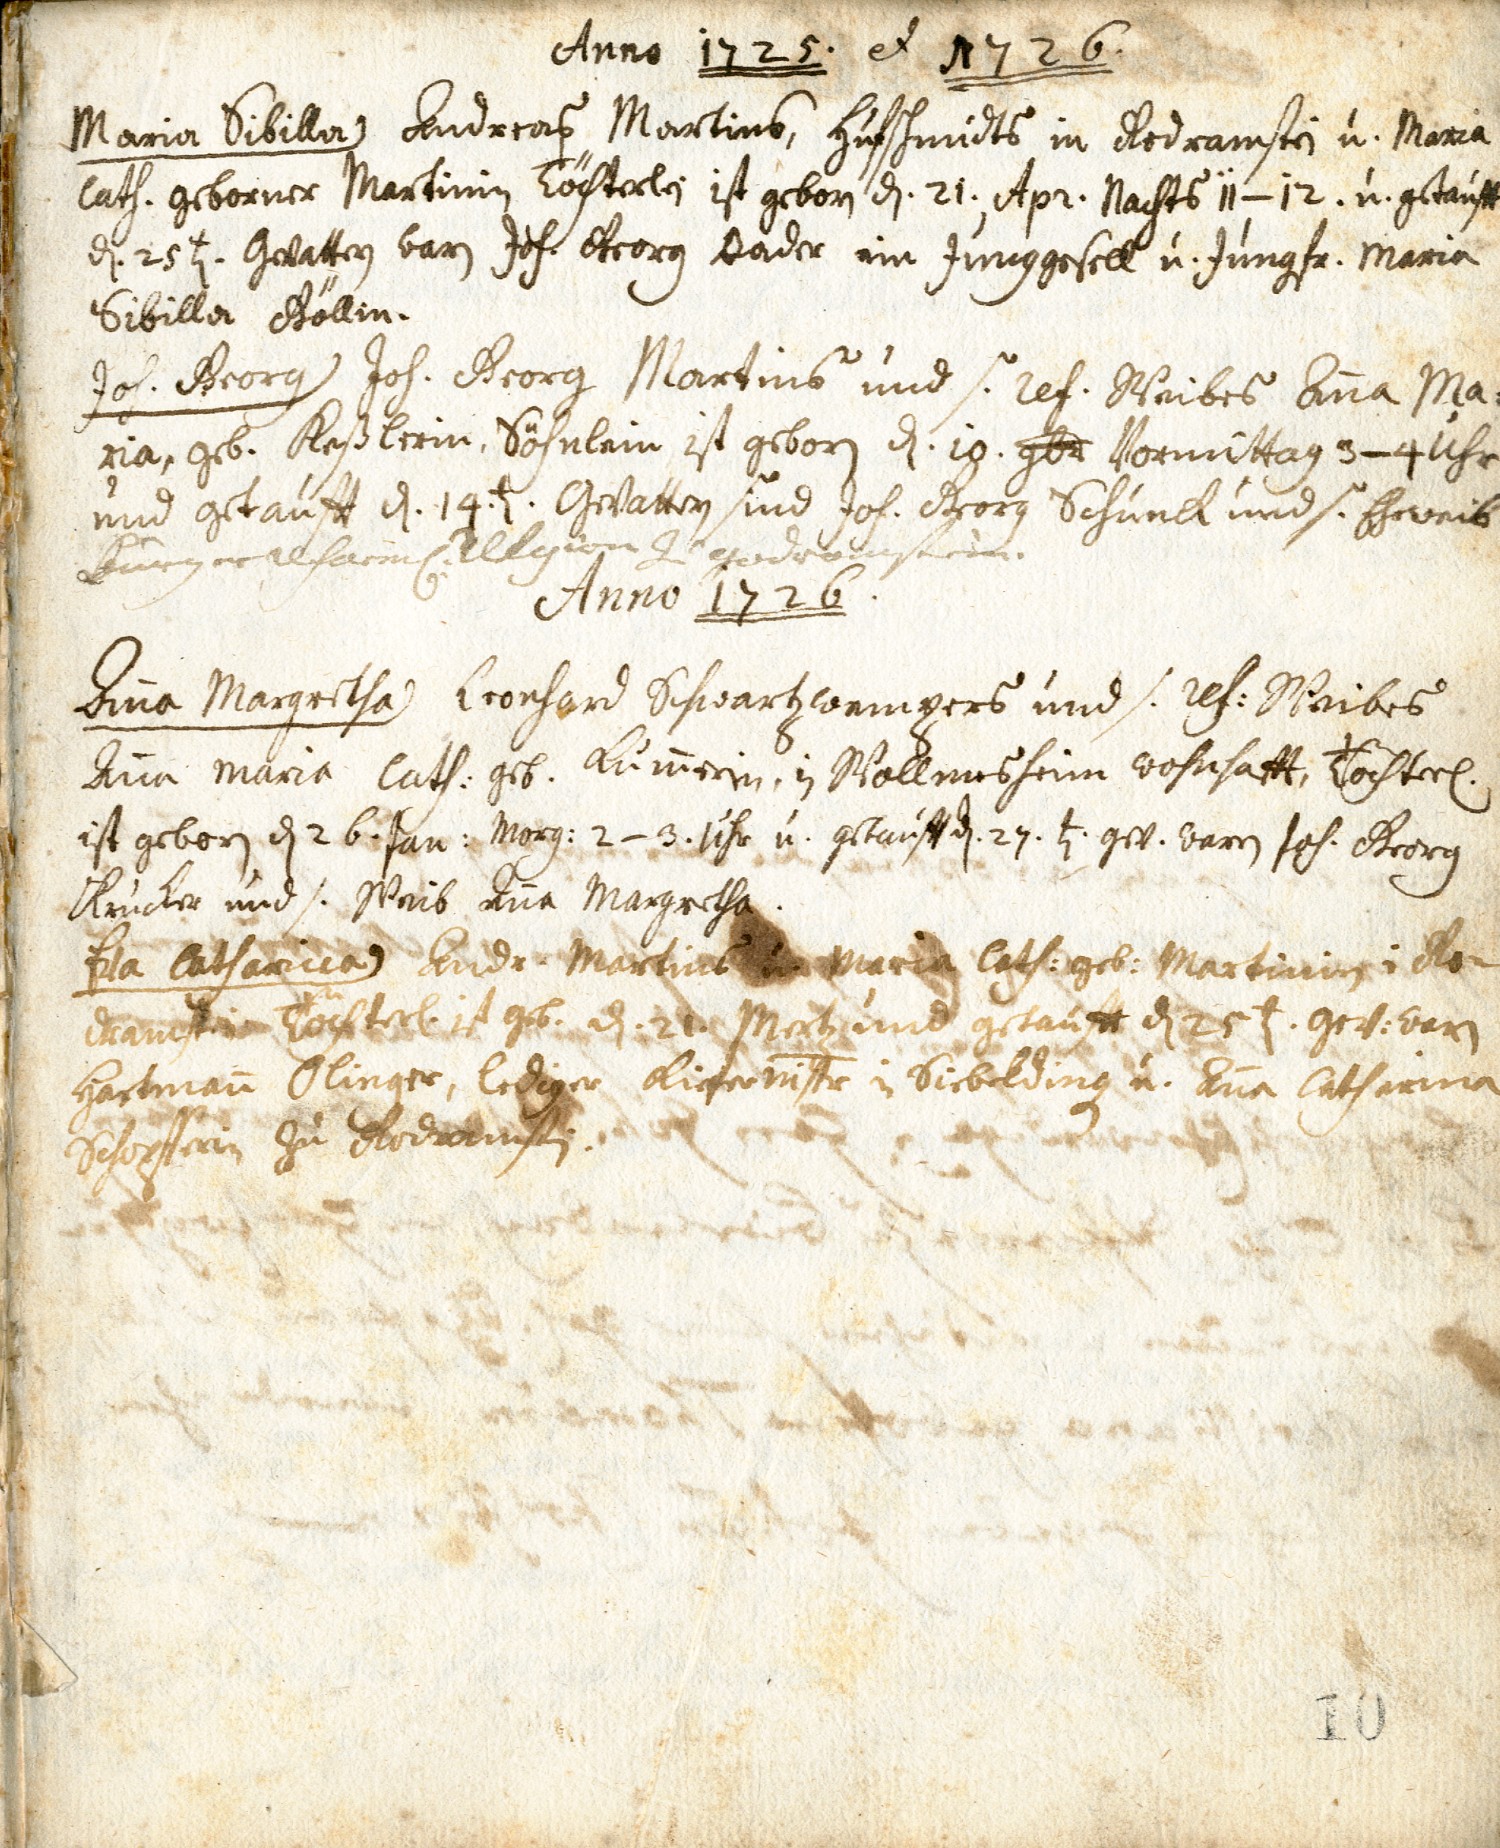 Anno 1725. et 1726.
Maria Sibilla) Andreas Martins, Hufschmidts in Godramstein u. Maria
Cath. geborner Martinin Töchterlein ist geborn d. 21. Apr. Nachts 11–12. u. getaufft
d. 25t. Gevattern waren Joh. Georg Bader ein Junggesell u. Jungfr. Maria
Sibilla Göllin.
Joh. Georg) Joh. Georg Martins und s. ref. Weibes Anna Ma-
ria, geb. Keßlerin, Söhnlein ist geborn d. 10. Vormittag 3–4 Uhr
und getaufft d. 14.t. Gevattern sind Joh. Georg Schunck und s. Eheweib
Godramstein.
Anno 1726.
Anna Margretha) Leonhard und s. ref: Weibes
Anna Maria Cath: geb. Kummerin, in Wollmesheim wohnhafft, Töchterl.
ist geborn d 26. Jan: Morg: 2–3. Uhr u. getaufft d. 27. t. gev. waren Joh. Georg
Krucker und s. Weib Anna Margretha.
Eva Catharina) Andr. Martins u. Maria Cath: geb: Martinin, i Go-
dramstein Töchterl. ist geb. d. 21. Mertz und getaufft d 25t. Gev: waren
Hartmann Olinger, lediger in Siebelding u. Anna Catharina
zu Godramstein.
10